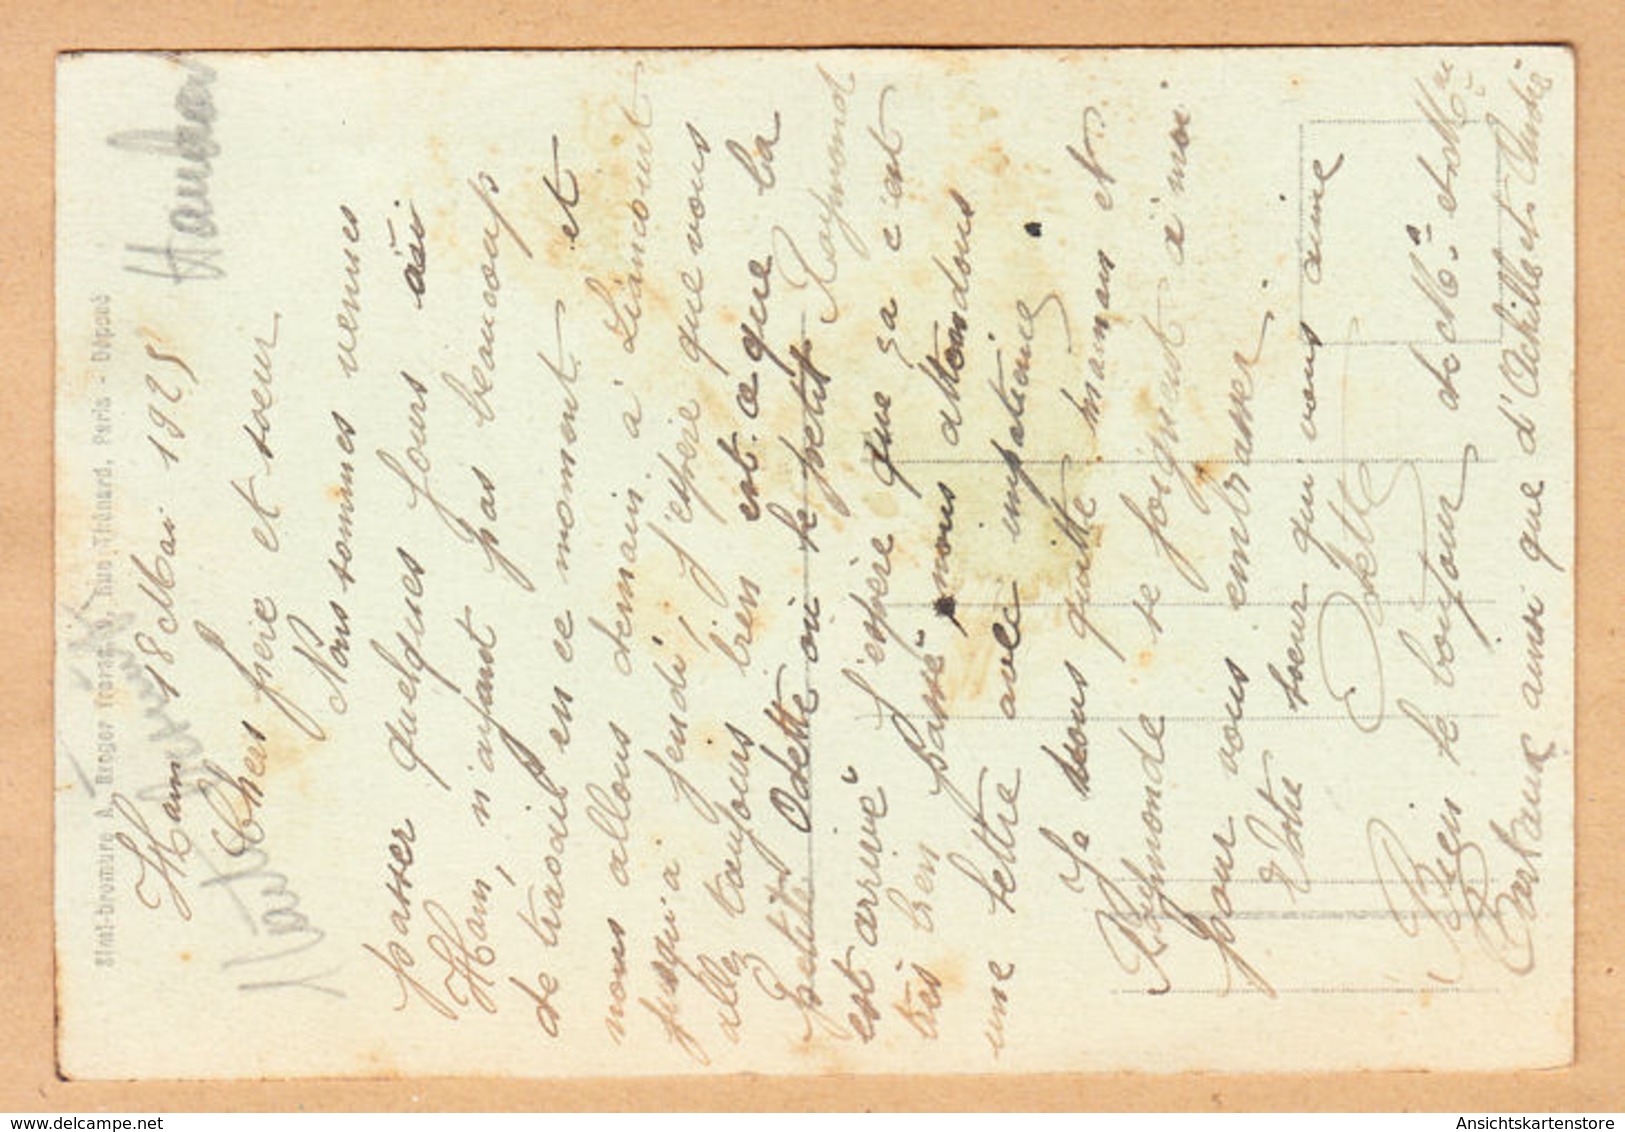 Ham 18 Mai 1925
Chers frère et sœur
Nous sommes venues
passer quelques jours à
Ham, n'ayant pas beaucoup
de travail en ce moment et
nous allons demain à Liancourt
jusqu'à jeudi j'espère que vous
allez toujours bien est-ce que la
petite Odette ou le petit Raymond
est arrivé J'espère que ça c'est
très bien passé nous attendons
une lettre avec impatience
Je vous quitte maman et
Raymonde se joignent à moi
pour vous embrasser
Votre sœur qui vous aime
Odette
Bien le bonjour de Mr et Mme
ainsi que d'Achille et
A. Breger frères, 9, Rue Thénard, Paris - Déposé
AnsichtskartenStore